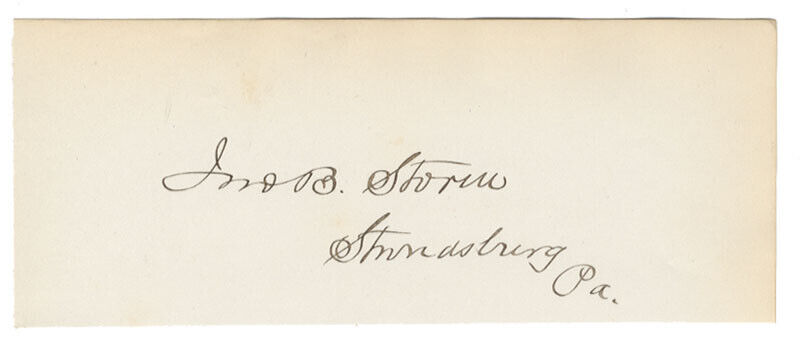 Jno B. Storm
Stroudsburg
Pa.